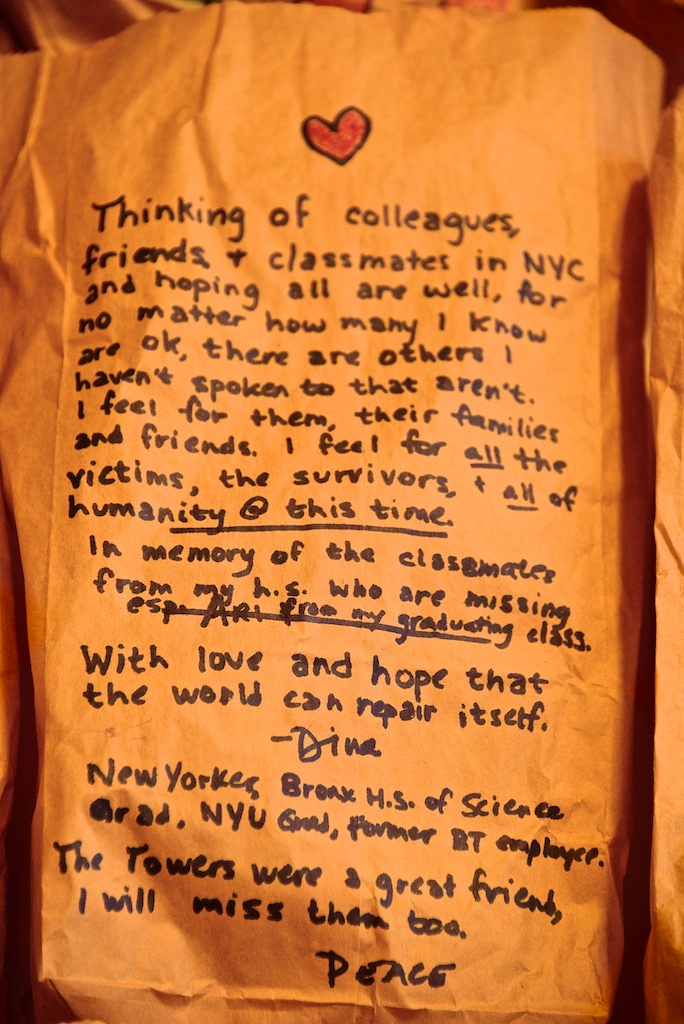 Thinking of colleagues,
friends, + classmates in NYC
and hoping all are well, for
no matter how many I know
are ok, there are others I
haven't spoken to that aren't.
I feel for them, their families
and friends. I feel for all the
victims, the survivors, + all of
humanity @ this time.
In memory of the classmates
from my h.s. who are missing
esp. ARI from my graduating class.
With love and hope that
the world can repair itself.
-Dina
New Yorker, Bronx H.S. of Science
Grad, NYU Grad, former BT employee.
The Towers were a great friend,
I will miss them too.
PEACE